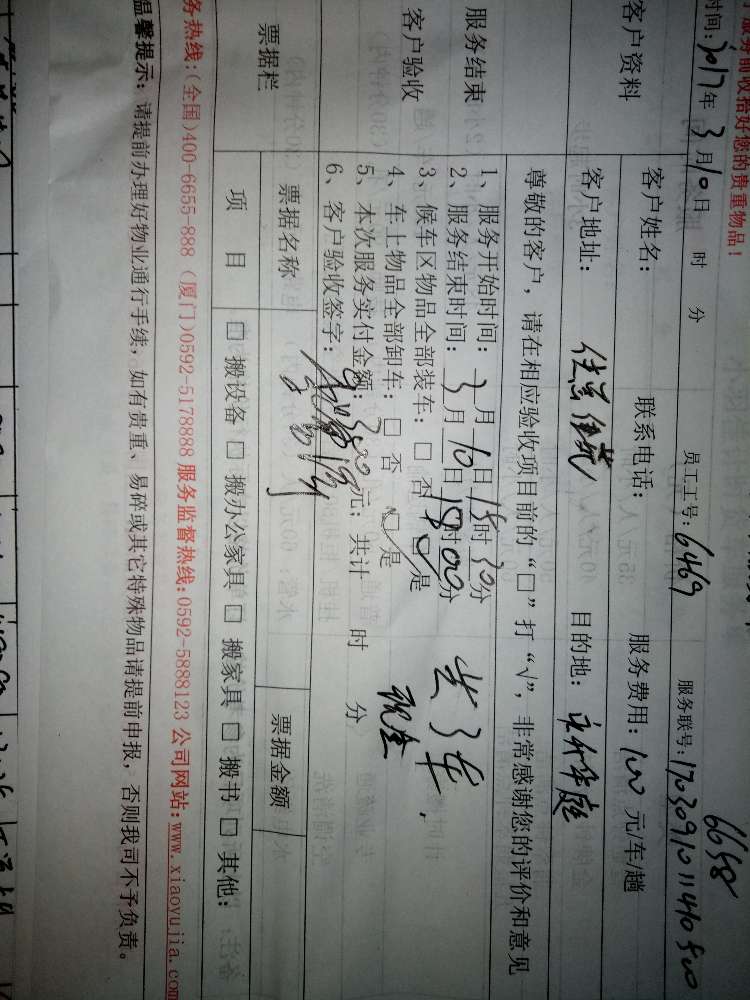 服务前收拾好您的贵重物品！
时间：2017年3月10日 时 分 员工工号：6469 服务联号：1703091011140500
6658
客户资料
客户姓名： 联系电话： 服务费用：100元/车/趟
客户地址： 目的地：
尊敬的客户，请在相应验收项目前的“□”打“√”，非常感谢您的评价和意见
服务结束
客户验收
1、服务开始时间：3月10日15时30分
2、服务结束时间：3月10日18时00分
3、候车区物品全部装车：□否 □是
4、车上物品全部卸车：□否 □是
5、本次服务实付金额：300元；共计 时 分
6、客户验收签字：
共3车
现金
票据栏
票据名称 票据金额
项 目 □搬设备 □搬办公家具 □搬家具 □搬书 □其他：
务热线：(全国)400-6655-888 (厦门)0592-5178888 服务监督热线：0592-5888123 公司网站：www.xiaoyujia.com
温馨提示：请提前办理好物业通行手续，如有贵重、易碎或其它特殊物品请提前申报，否则我司不予负责。